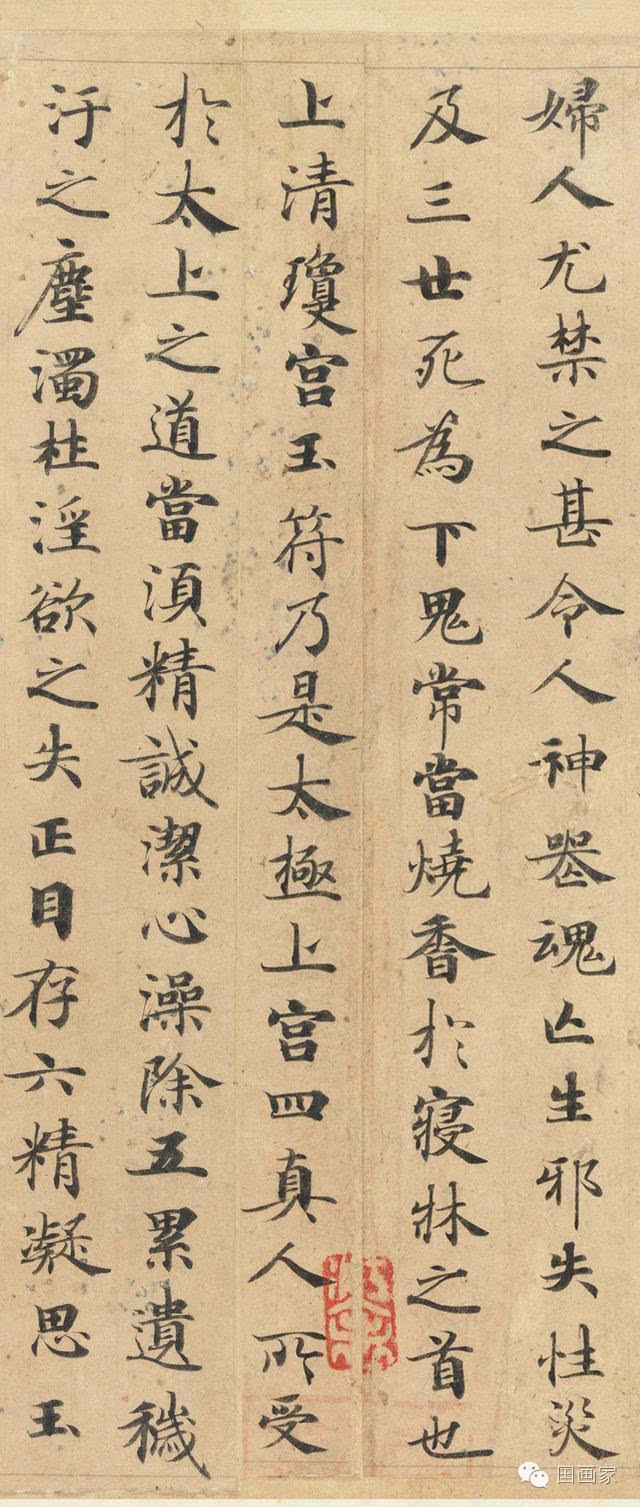 婦人尤禁之甚令人神喪魂亡生邪失性災
及三世死為下鬼常當燒香於寢牀之首也
上清瓊宮玉符乃是太極上宮四真人所受
於太上之道當須精誠潔心澡除五累遺穢
汙之塵濁杜淫欲之失正目存六精凝思玉
国画家